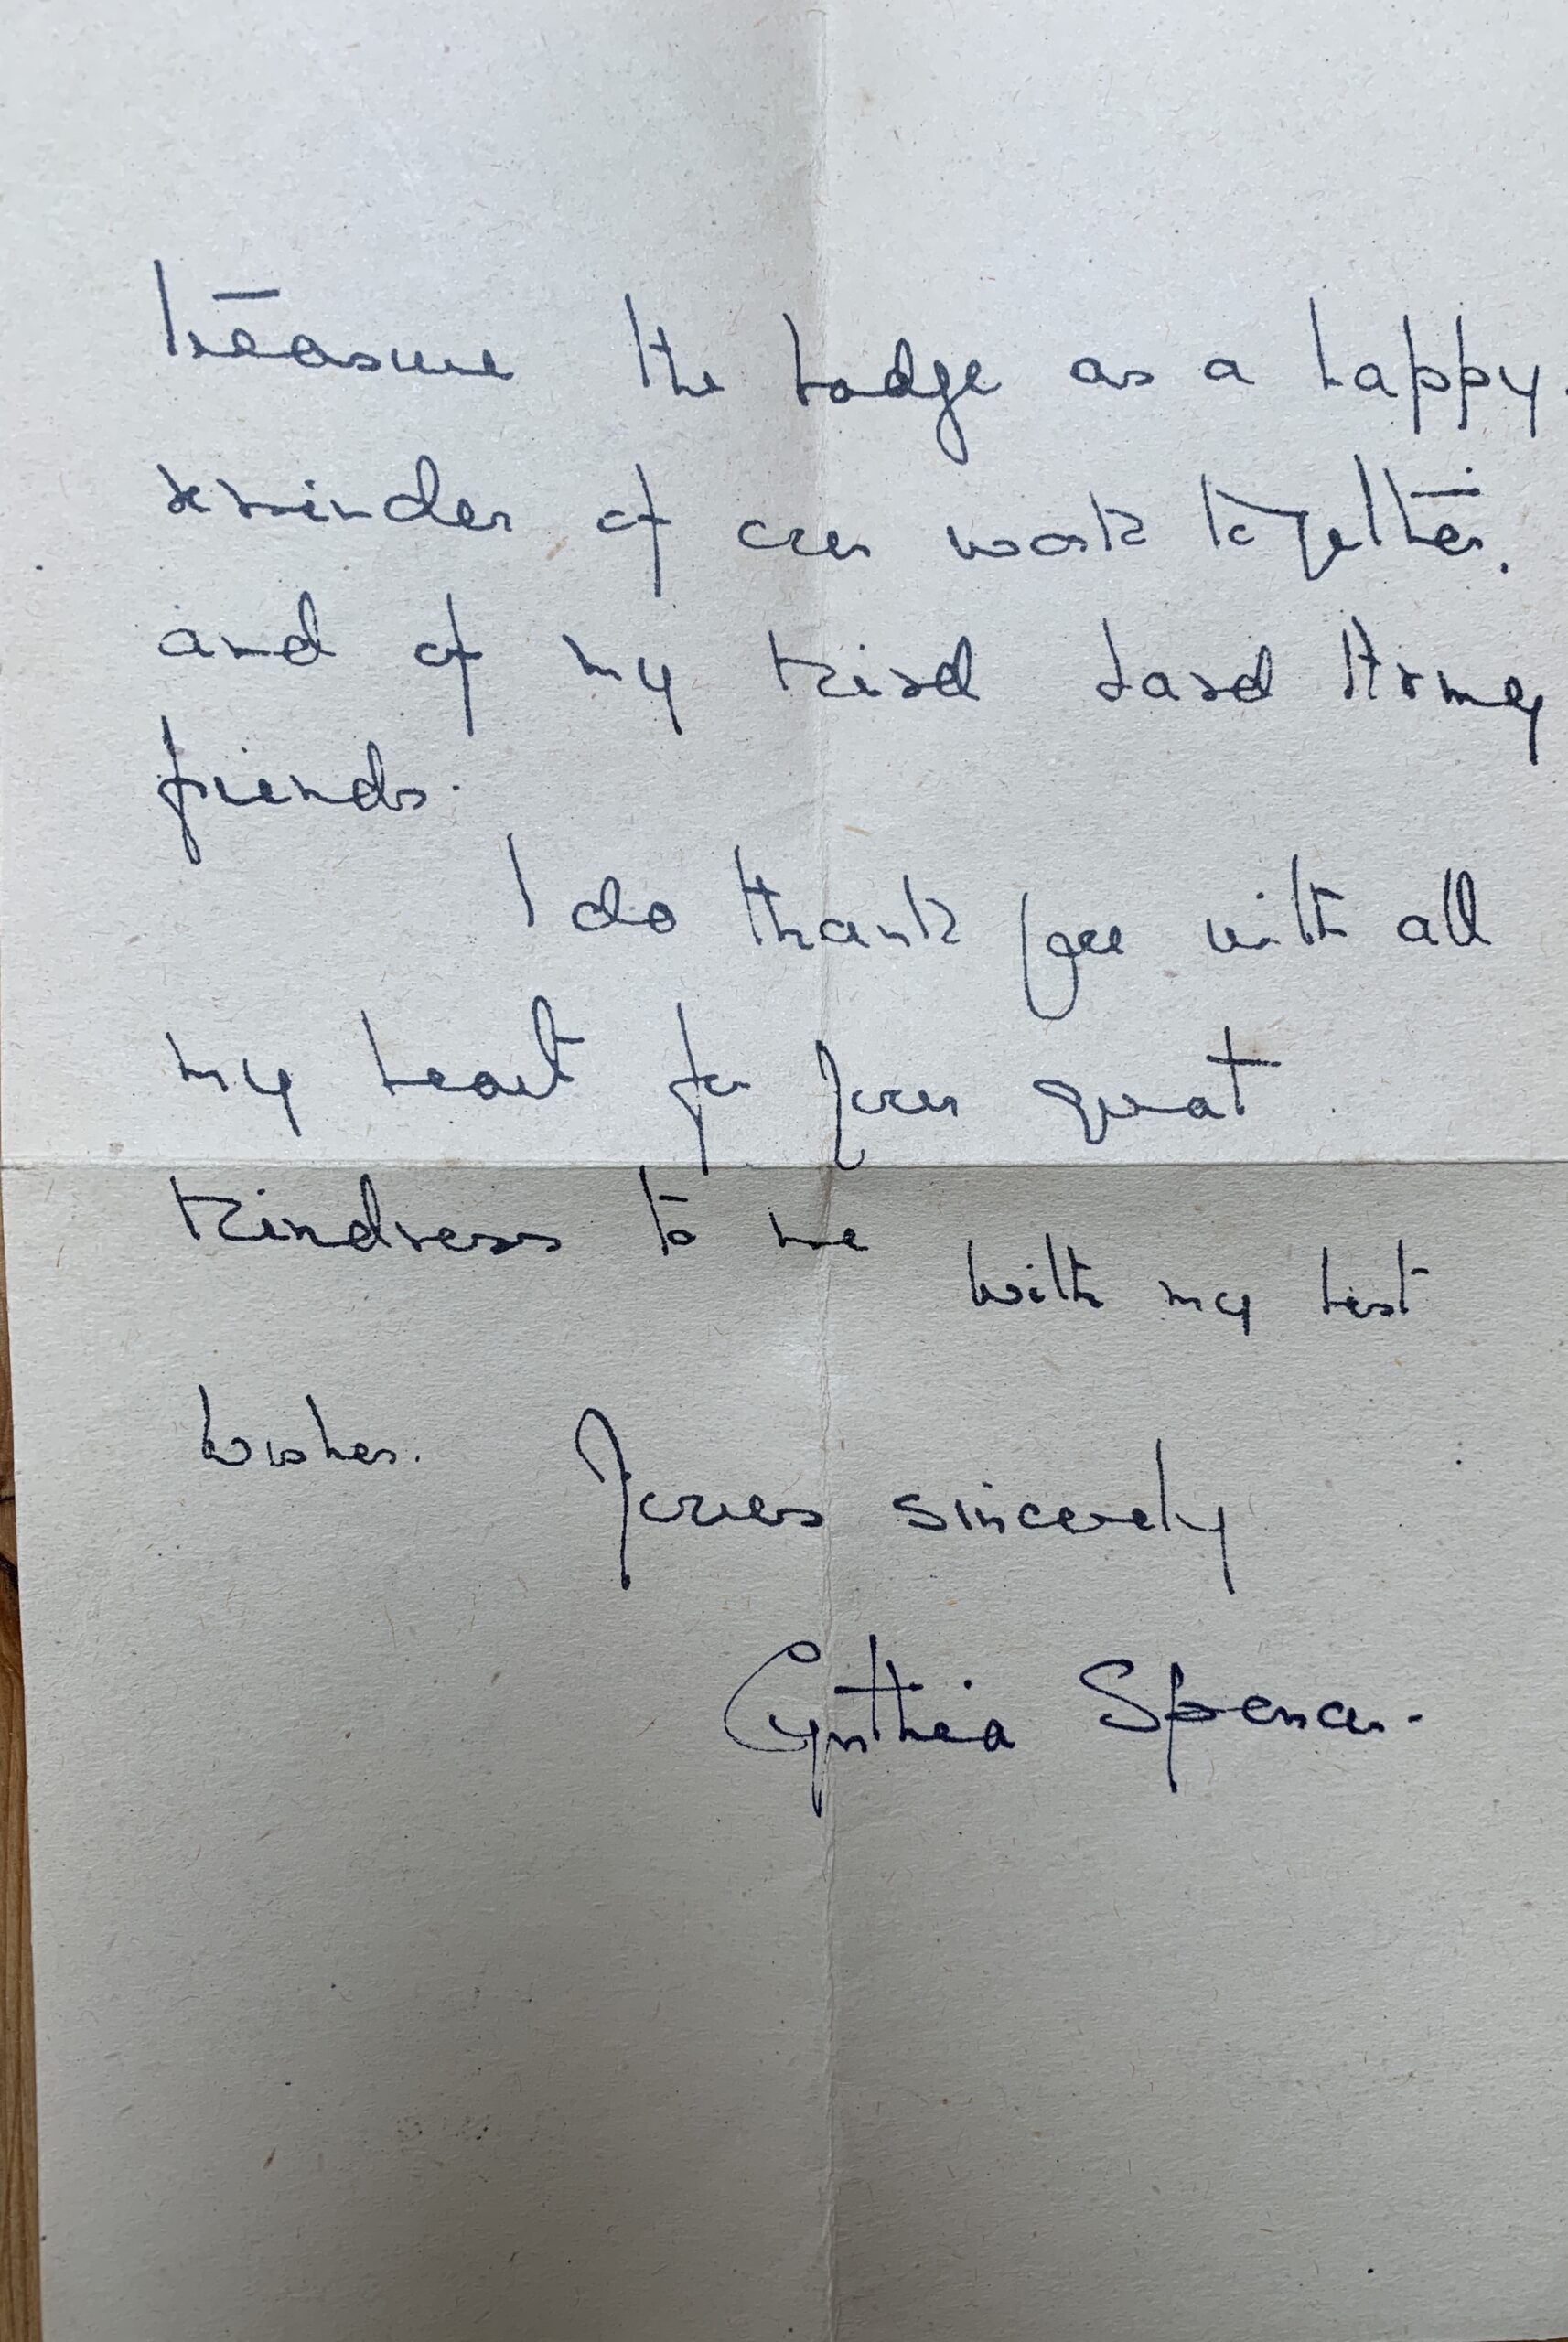 treasure the badge as a happy
reminder of our work together.
and of my kind Land Army
friends.
I do thank you with all
my heart for your great
kindness to me
with my best
wishes.
Yours sincerely
Cynthia Spencer.